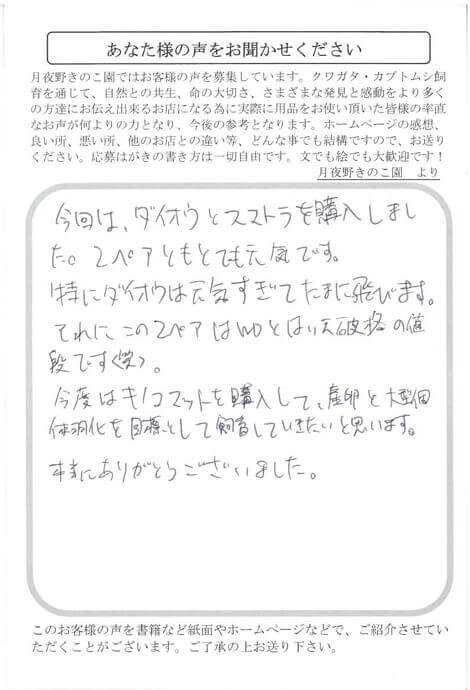 あなた様の声をお聞かせください
月夜野きのこ園ではお客様の声を募集しています。クワガタ・カブトムシ飼
育を通じて、自然との共生、命の大切さ、さまざまな発見と感動をより多く
の方達にお伝え出来るお店になる為に実際に用品をお使い頂いた皆様の率直
なお声が何よりの力となり、今後の参考となります。ホームページの感想、
良い所、悪い所、他のお店との違い等、どんな事でも結構ですので、お送り
ください。応募はがきの書き方は一切自由です。文でも絵でも大歓迎です！
月夜野きのこ園 より
今回は、ダイオウとスマトラを購入しまし
た。2ペアともとても元気です。
特にダイオウは元気すぎてたまに飛びます。
それに、この2ペアはWDとはいえ破格の値
段です(笑)。
今度はキノコマットを購入して、産卵と大型個
体羽化を目標として飼育していきたいと思います。
本当にありがとうございました。
このお客様の声を書籍など紙面やホームページなどで、ご紹介させてい
ただくことがございます。ご了承の上お送り下さい。